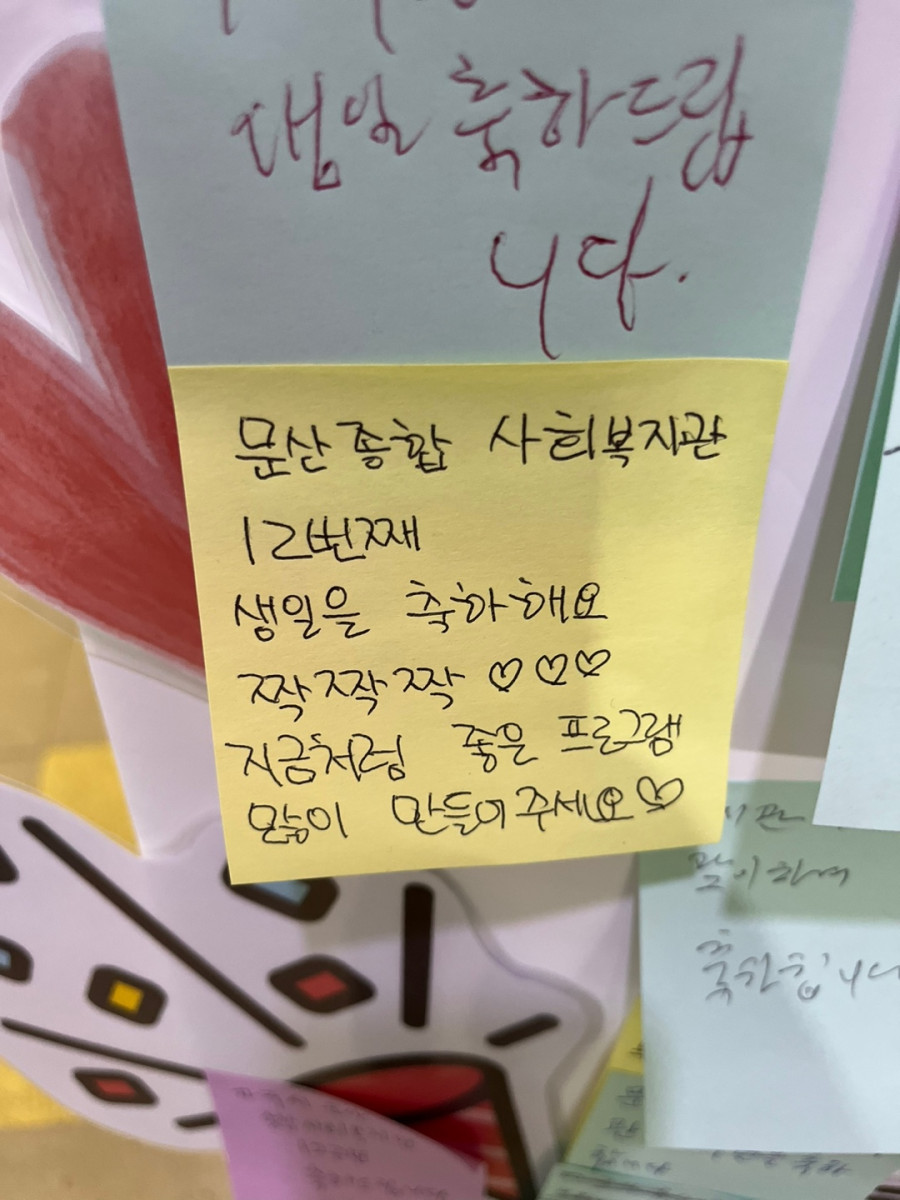 생일 축하드립
니다.
문산종합 사회복지관
12번째
생일을 축하해요
짝짝짝 ♡♡♡
지금처럼 좋은 프로그램
많이 만들어주세요♡
맞이하여
축하합니다